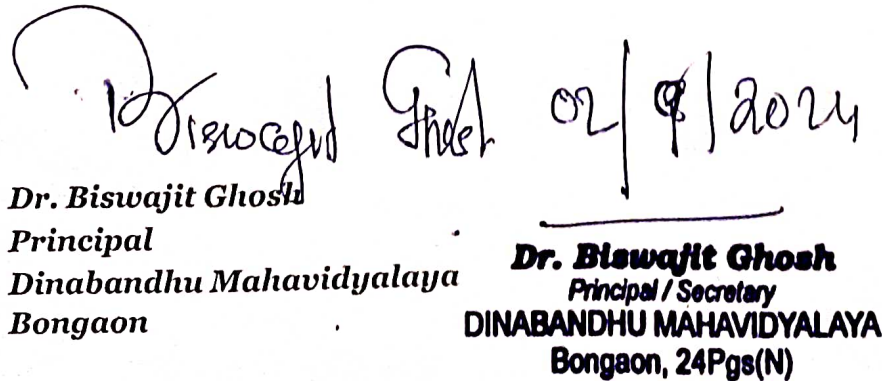 Biswajit Ghosh 02/9/2024
Dr. Biswajit Ghosh
Principal
Dinabandhu Mahavidyalaya
Bongaon
Dr. Biswajit Ghosh
Principal / Secretary
DINABANDHU MAHAVIDYALAYA
Bongaon, 24Pgs(N)